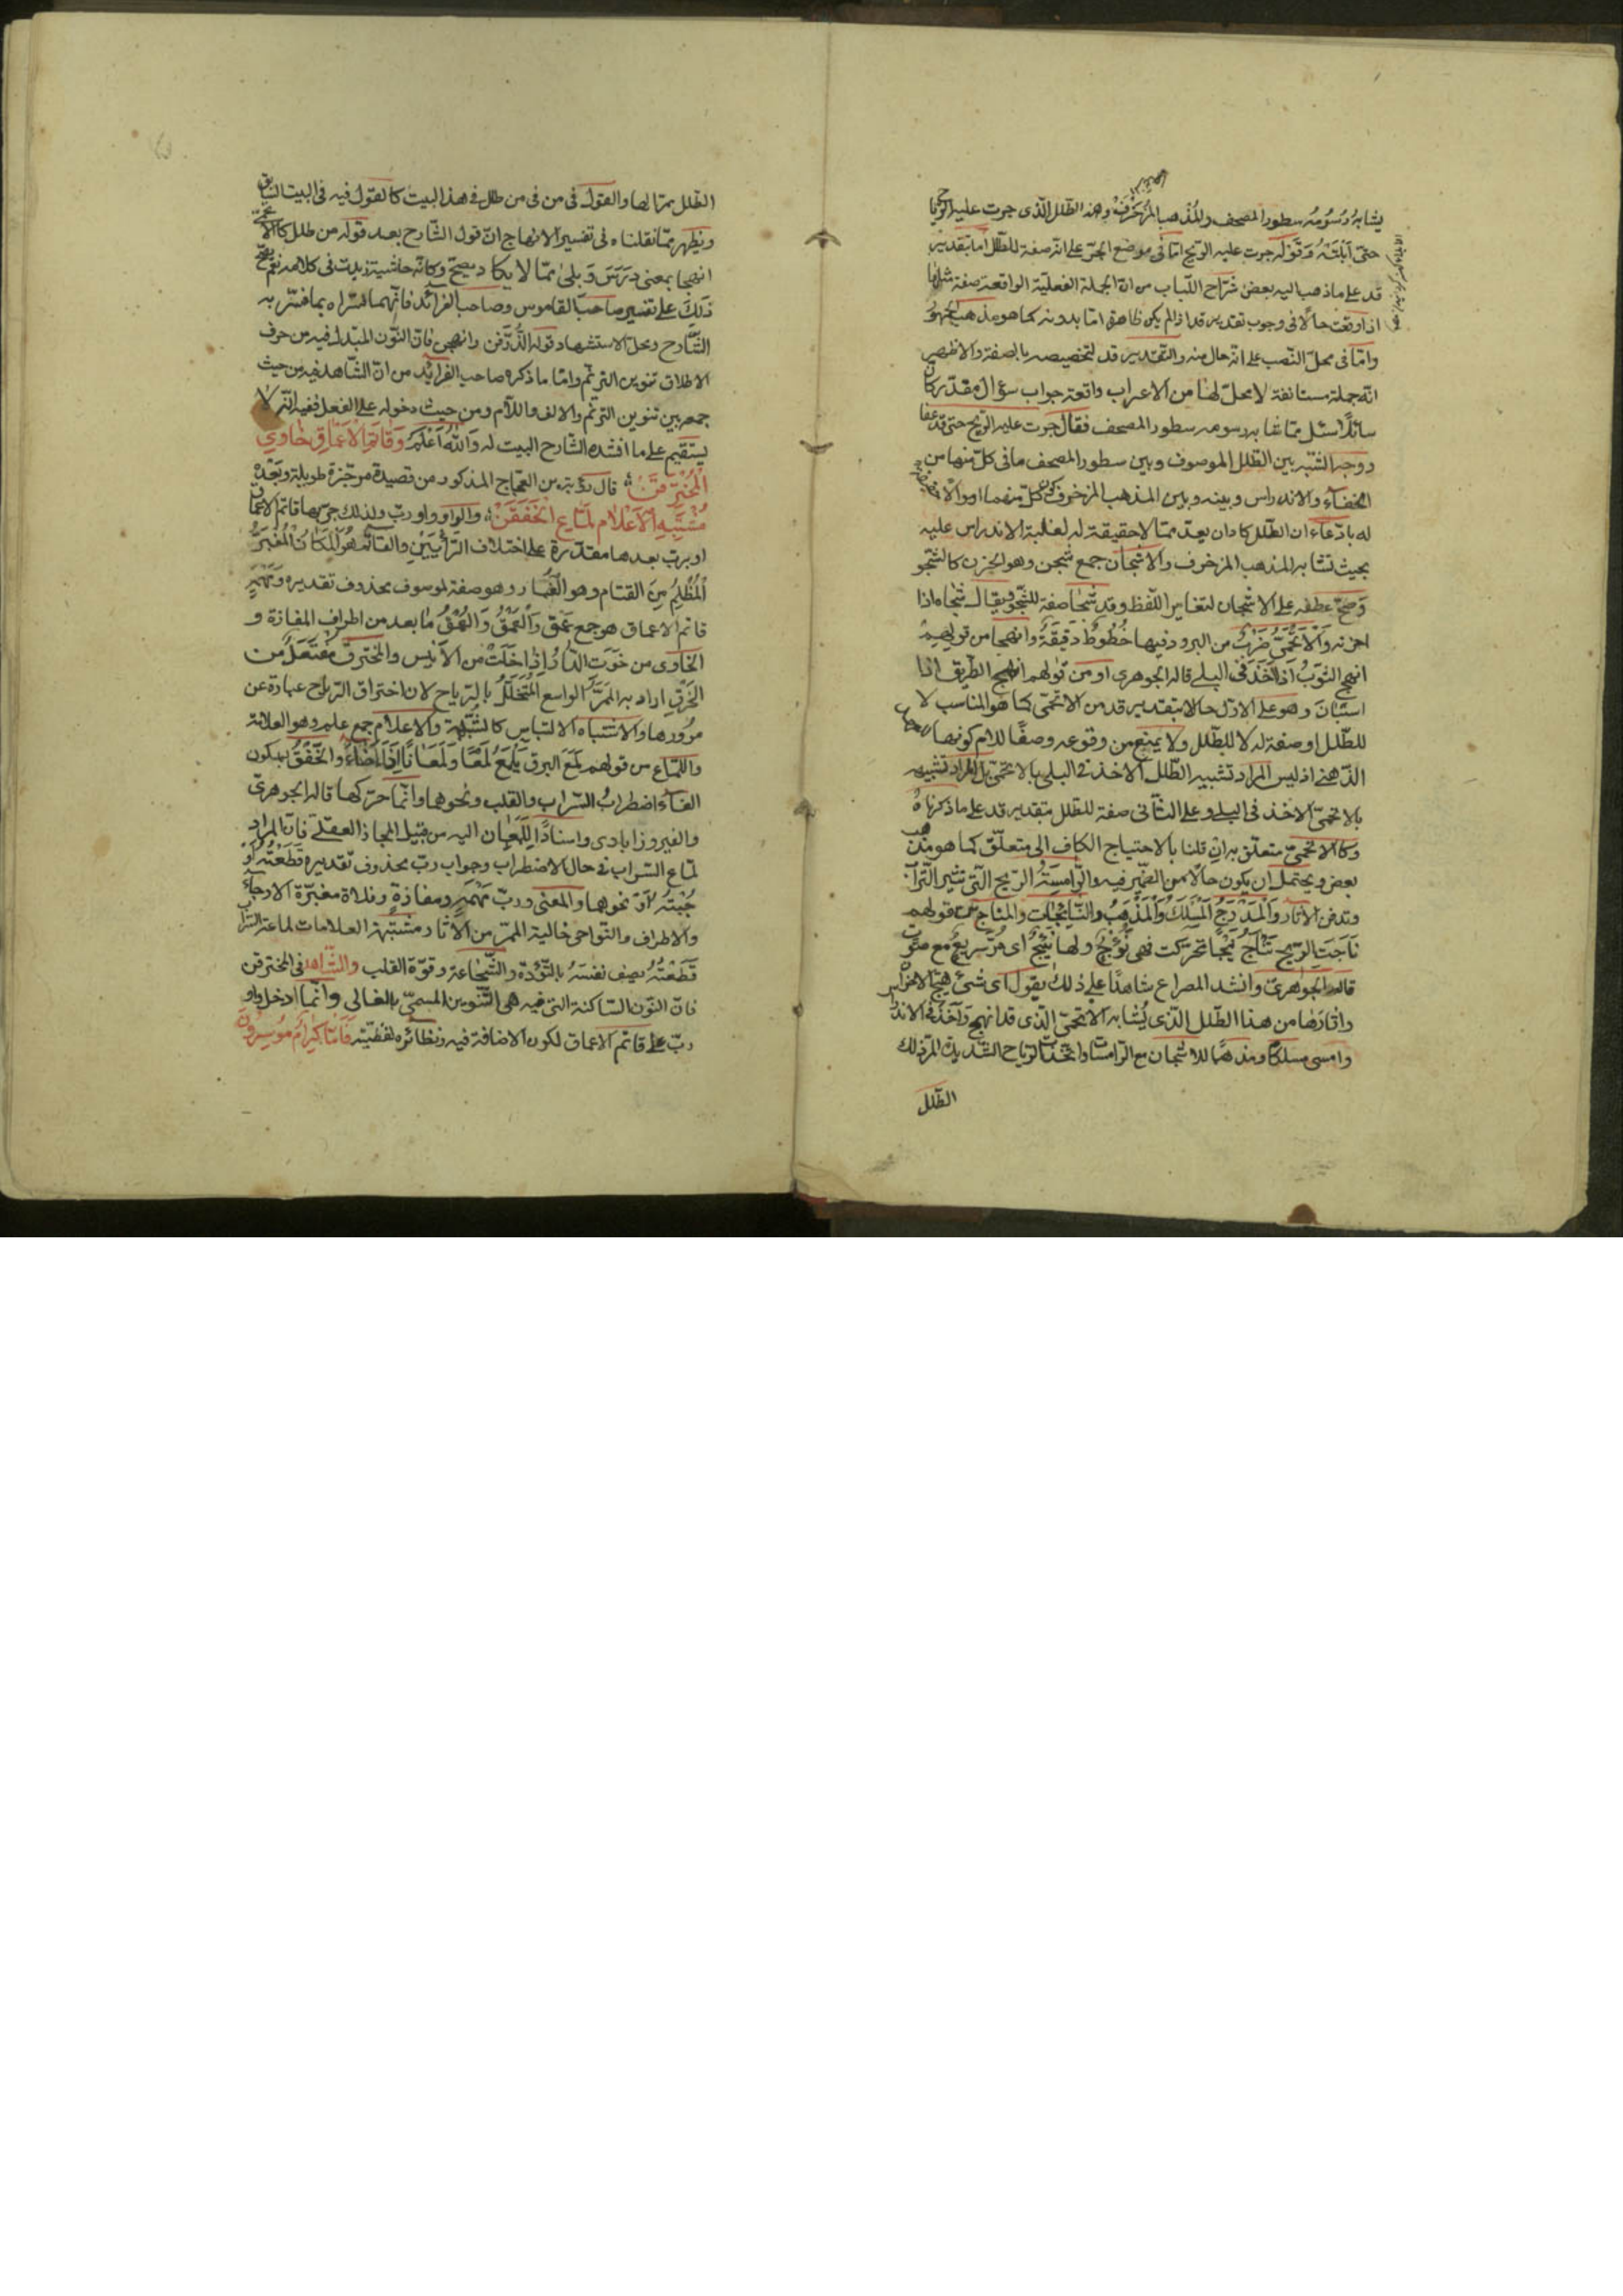 يشابهُ رُسُومُه سطور المصحف والمُذْهب المُزَخْرَف وهذه الطّلل الّذى جرت عليه الرّيح
حتّى اَبْلَتْهُ وَقَوْلُه جرت عليه الرّيح امّا فى موضع الجرّ على انّه صفة للطّلل امّا بتقدير
قد على ماذهب اليه بعض شرّاح اللّباب من انّ الجملة الفعليّة الواقعة صفة مثلها
اذا وقعت حالًا فى وجوب تقدير قد اذا لم يكن ظاهرة امّا بدونه كما هو مذهب الجمهور
وامّا فى محلّ النّصب على انّه حال منه والتّقدير قد لتخصيصه بالصفة والاظهر
انّه جملة مستانفة لا محلّ لها من الاعراب واقعة جواب سؤال مقدّر كانّ
سائلًا سئل ممّا عفا به رسومه سطور المصحف فقال جرت عليه الرّيح حتّى قد عفا
ووجه الشّبه بين الطّلل الموصوف وبين سطور المصحف ما فى كلّ منها من
الخفاء والاندراس وبينه وبين المذهب المزخرف كون كلّ منهما
له بادّعاء ان الطّلل كاد ان يعدّ ممّا لا حقيقة له لغلبة الاندراس عليه
بحيث تشابه المذهب المزخرف والاشجان جمع شجن وهو الحزن كالشّجو
وَصَحّ عطفه على الاشجان لتغاير اللّفظ وقد شجا صفة للشّجو ويقال شجاه اذا
احزنه وَالْاَتْحَمِيّ ضَرْبٌ من البرود فيها خُطُوطٌ دَقِيقَةٌ وانهجا من قولهم
انهج الثَّوْبُ اذا اَخَذَ فى البلى قاله الجوهرى او من قولهم انهج الطّريق اذا
استبان وهو على الاوّل حالا بتقدير قد من الاتحمى كما هو المناسب لا
للطّلل او صفة له لا للطّلل ولا يمنع من وقوعه وصفًا للام كونها
الذّهنى اذ ليس المراد تشبيه الطّلل الاخذ فى البلى بالاتحمى بل المراد تشبيهه
بالاتحمىّ الاخذ فى البلى وعلى الثّانى صفة للطلل بتقدير قد على ما ذكرناهُ
وكالاتحمىّ متعلّق به ان قلنا بالاحتياج الكاف الى متعلّق كما هو مذهب
بعض ويحتمل ان يكون حالًا من الضّمير فيه والرّامسَةُ الرّيح الّتى تثير التّراب
وتدفن الاثار وَالْمَدْرَجُ الْمَسْلَكُ وَالْمَذْهَبُ والنّائجات والمناج من قولهم
نَاَجَتِ الرّيح تَنْأَجُ نَئِيجًا تحرّكت فهى نَؤُجٌ ولها نَئِيجٌ اى مرّ سريع مع صوت
قاله الجوهرىّ وانشد المصراع شاهدًا على ذلك يقول اى شىء هيّج الاحزان
واثارَها من هذا الطّلل الّذى يُشابه الاتحمىّ الّذى قد انهج وَاَخَذَ فى الاندراس
وامسى مسلكًا ومذهبًا للاشجان مع الرّامسات الرّياح الشّديدة المرّ ذلك
الطّلل
الطّلل بمرّ ايها والقول فى من فى من طلل فى هذا البيت كالقول فيه فى البيت السّابق
ويظهر ممّا نقلناه فى تفسير الانهاج انّ قول الشّارح بعد قوله من طلل كالاتحمى
انهجا بمعنى دَرَسَ وَبلى ممّا لا يكاد يصحّ وكانّه حاشية زيدت فى كلامه نعم يصحّ
ذلِكَ على تفسير صاحب القاموس وصاحب الفرائد فانّهما فسّراه بما فسّر به
الشّارح ومحلّ الاستشهاد قوله الذُّرَّفن وانهجن فانّ النّون المبدل فيه من حرف
الاطلاق تنوين الترنّم وامّا ما ذكره صاحب الفرائد من انّ الشّاهد فيه من حيث
جمعه بين تنوين الترنّم والالف واللّام ومن حيث دخوله على الفعل ففيه انّه لا
يستقيم على ما انشده الشّارح البيت له وَاللهُ اَعْلَمُ وَقَاتِمِ الْاَعْمَاقِ خَاوِي
الْمُخْتَرَقَنْ قال رؤبة بن العجّاج المذكور من قصيدة مرجّزة طويلة وبَعْدَهُ
مُشْتَبِهِ الْاَعْلَامِ لَمَّاعِ الْخَفَقَنْ والواو واو ربّ ولذلك جرّ بها قاتم الاعماق
او بربّ بعدها مقدّرة على اختلاف الرَّأيَيْنِ والقاتم هُوَ الْمَكَانُ الْمُغْبَرُّ
الْمُظْلِمُ مِنَ القتام وهو الغبار وهو صفة لموسوف محذوف تقديره وَمَهْمَهٍ
قاتم الاعماق هو جمع عَمْق وَالْعَمْقُ وَالْعُمْقُ مَا بعد من اطراف المفازة و
الخاوى من خَوَتِ الدَّارُ اِذَا خَلَتْ من الاَنِيس والمخترق مُفْتَعَلٌ من
الخَرْقِ اراد به الْمَمَرَّ الواسع الْمُتَخَلَّلُ بالرّياح لان اختراق الرّياح عبارة عن
مرُورها والاشتباه الالتباس كالشّبهة والاعلام جمع علم وهو العلامة
واللّمّاع من قولهم لَمَعَ البرق يَلْمَعُ لَمْعًا وَلَمَعَانًا اِذَا اَضَاءَ وَالْخَفْقُ بسكون
الفاء اضطرابُ السّراب والقلب ونحوهما وانّما حرّكها قاله الجوهرىّ
والفيروزابادى واسنادًا لِلّمَعَان اليه من قبيل المجاز العقلى فانّ المراد
لمّاع السّراب فى حال الاضطراب وجواب ربّ محذوف تقديره قَطَعْتُهُ اَوْ
جُبْتُهُ اَوْ نحوهما والمعنى وربّ مَهْمَهٍ ومفازةٍ وفلاة مغبّرة الارجاء
والاطراف والنّواحى خالية الممرّ من الاثار مشتبهة العلامات لماعة السّراب
قَطَعْتُهُ يصف نفسَهُ بالتّؤدة والشّجاعة وقوّة القلب والشّاهد فى المخترقن
فانّ النّون السّاكنة التى فيه هى التّنوين المسمّى بالغالى وانّما ادخل واو
ربّ على قاتم الاعماق لكون الاضافة فيه ونظائره لفظيّة